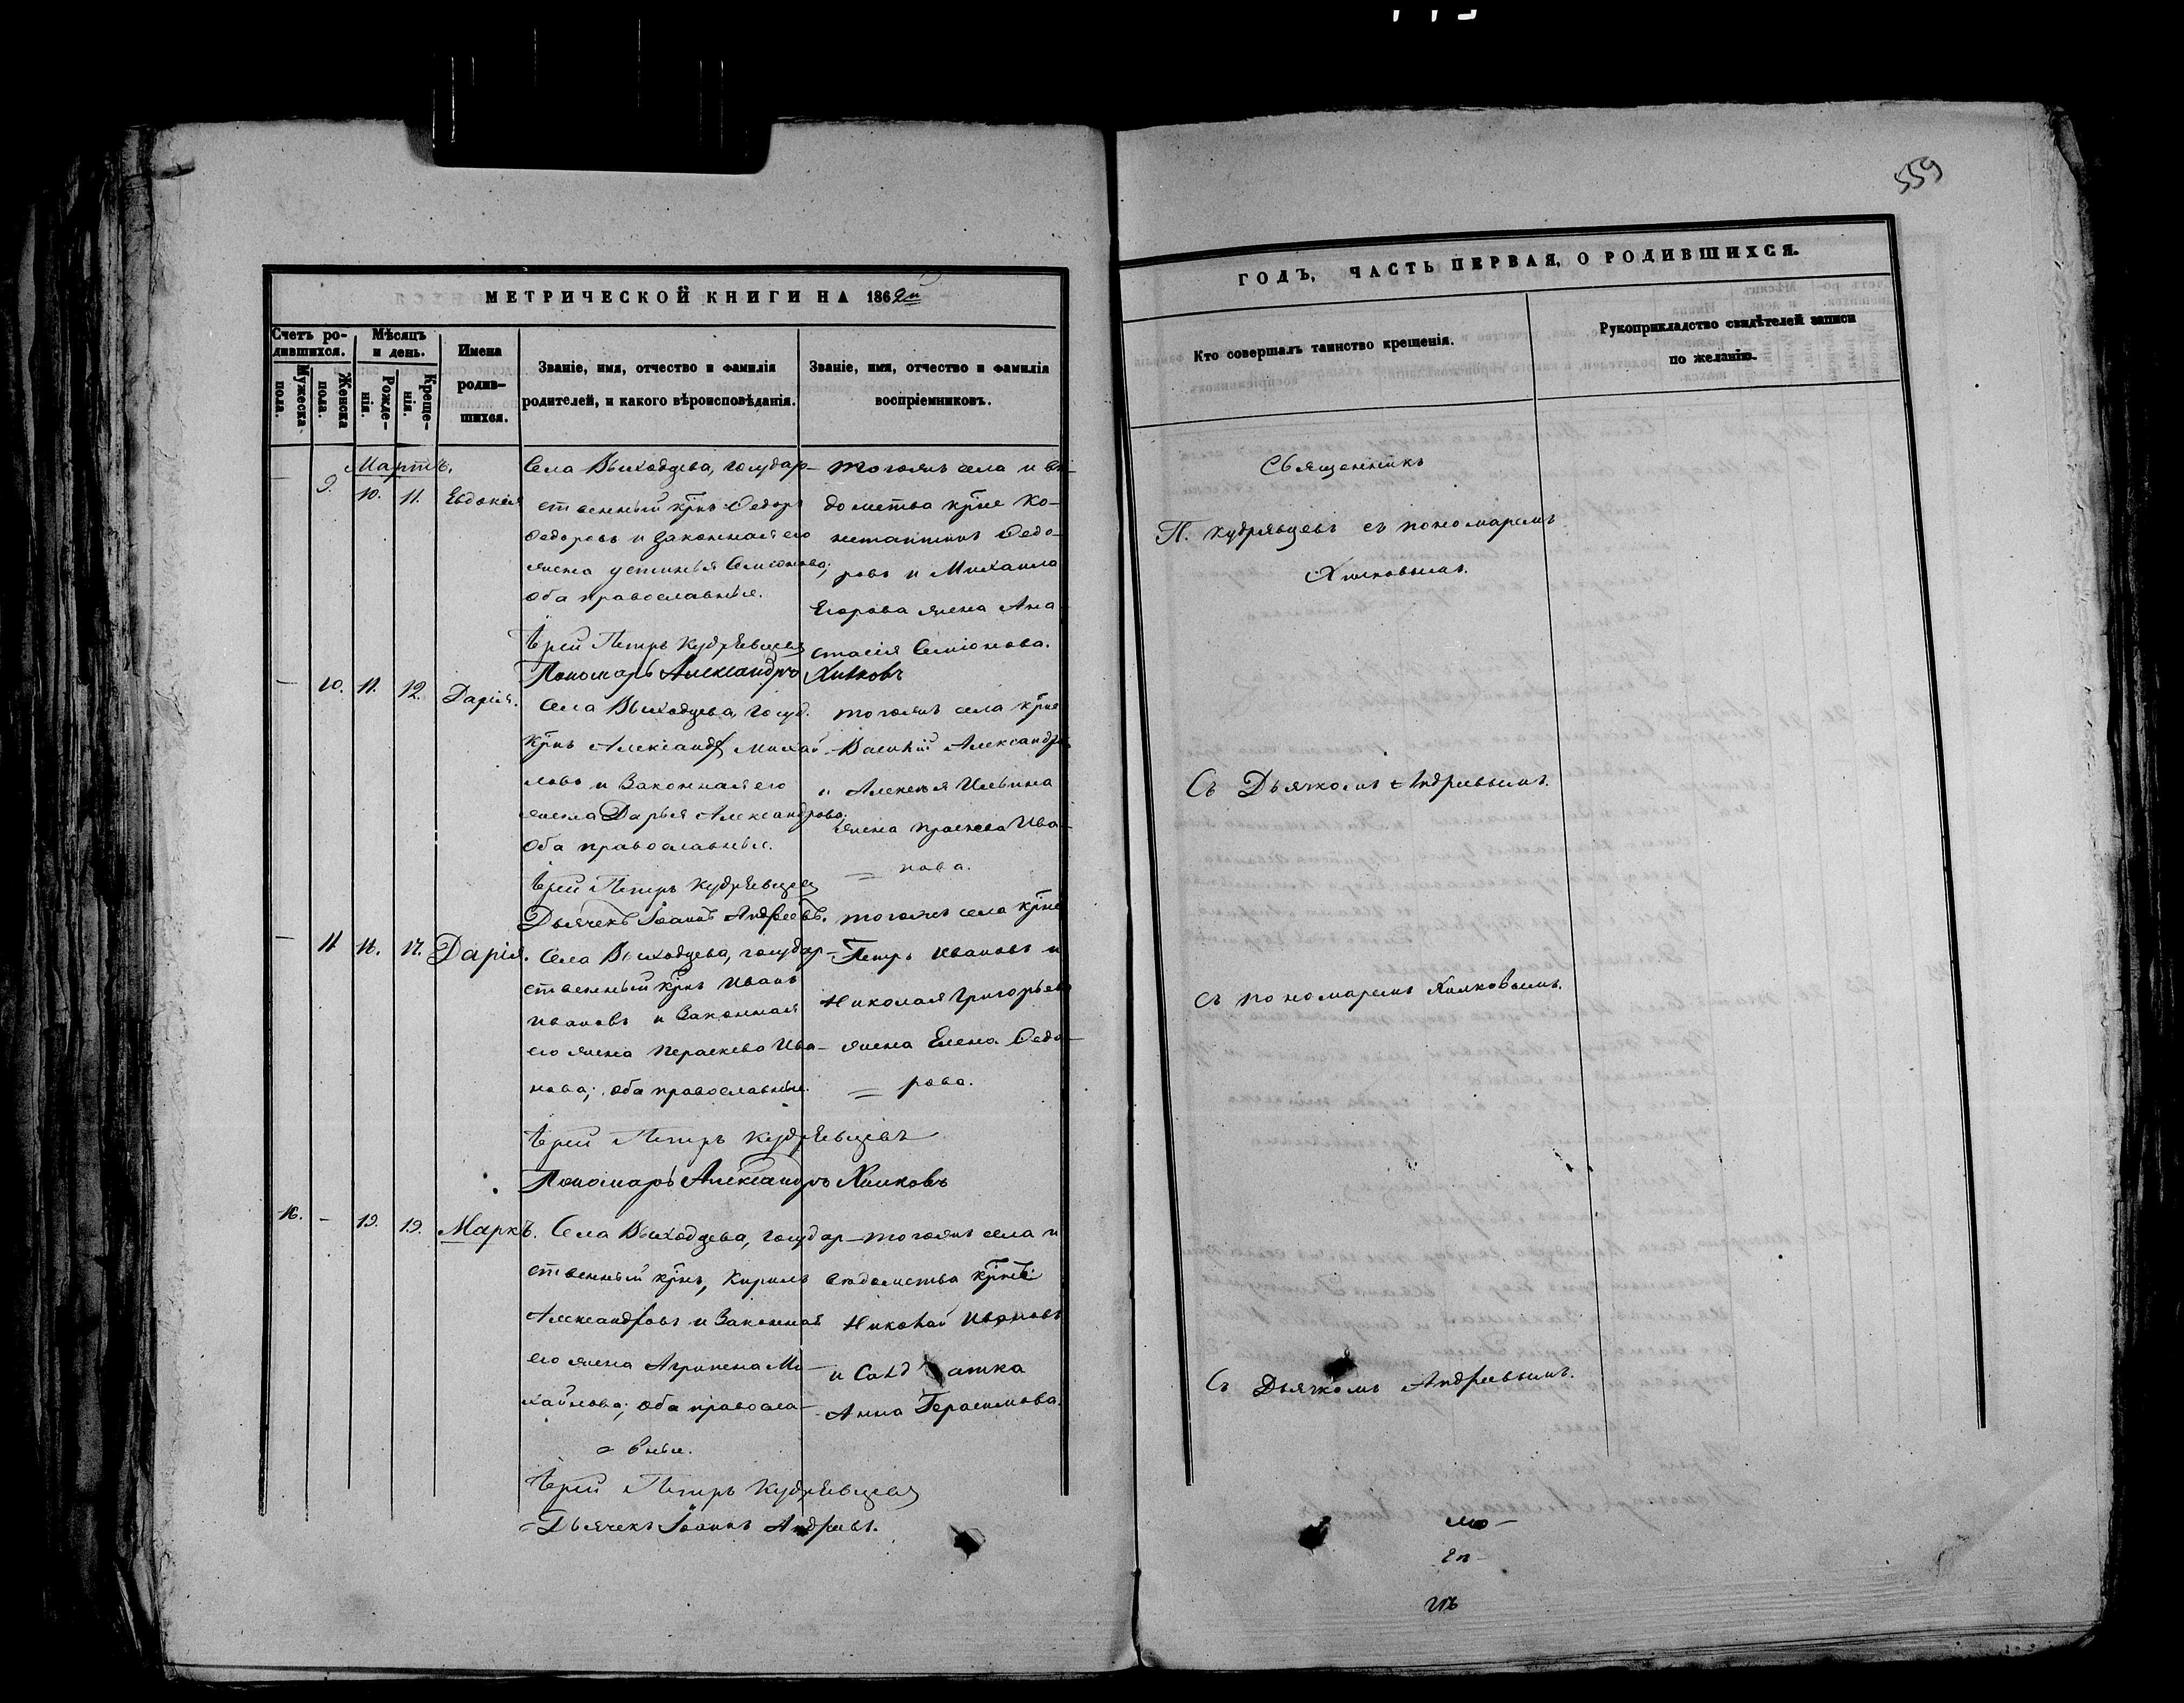 559
МЕТРИЧЕСКОЙ КНИГИ НА 1862й
Счетъ ро-
дившихся.
Мужеска
пола.
Женска
пола.
Мѣсяцъ
и день.
Рожде-
нія.
Креще-
нія.
Имена
родив-
шихся.
Званіе, имя, отчество и фамилія
родителей, и какого вѣроисповѣданія.
Званіе, имя, отчество и фамилія
воспріемниковъ.
Мартъ.
— 9. 10. 11. Евдокія
Села Выходцева, государ-
ственный крнъ Ѳедоръ
Ѳедоровъ и законная его
жена Устинья Симіонова;
оба православные.
Іерей Петръ Кудрявцевъ
Пономарь Александръ Хилковъ
тогожъ села и вѣ-
домства крне Ко-
нстантинъ Ѳедо-
ровъ и Михаила
Егорова жена Ана-
стасія Симіонова.
— 10. 11. 12. Дарія.
Села Выходцева, госуд.
крнъ Александръ Михай-
ловъ и законная его
жена Дарья Александрова;
оба православные.
Іерей Петръ Кудрявцевъ
Дьячекъ Іоаннъ Андреевъ.
тогожъ села крне
Василій Александровъ
и Алексѣя Ильина
жена Праскева Ива-
нова.
— 11 16. 17. Дарія.
Села Выходцева, государ-
ственный крнъ Иванъ
Ивановъ и законная
его жена Параскева Ива-
нова; оба православные.
Іерей Петръ Кудрявцевъ
Пономарь Александръ Хилковъ
тогожъ села крне
Петръ Ивановъ и
Николая Григорьева
жена Елена Ѳедо-
рова.
16. — 19. 19. Маркъ.
Села Выходцева, государ-
ственный крнъ, Кирилъ
Александровъ и законная
его жена Агрипена Ми-
хайлова; оба правосла-
вные.
Іерей Петръ Кудрявцевъ
Дьячекъ Іоаннъ Андреевъ.
тогожъ села и
вѣдомства крне
Николай Ивановъ
и Солдатка
Анна Герасимова.
ГОДЪ, ЧАСТЬ ПЕРВАЯ, О РОДИВШИХСЯ.
Кто совершалъ таинство крещенія.
Рукоприкладство свидѣтелей записи
по желанію.
Священникъ
П. Кудрявцевъ съ пономаремъ
Хилковымъ.
Съ Дьячкомъ Андреевымъ.
Съ пономаремъ Хилковымъ.
Съ Дьячкомъ Андреевымъ.